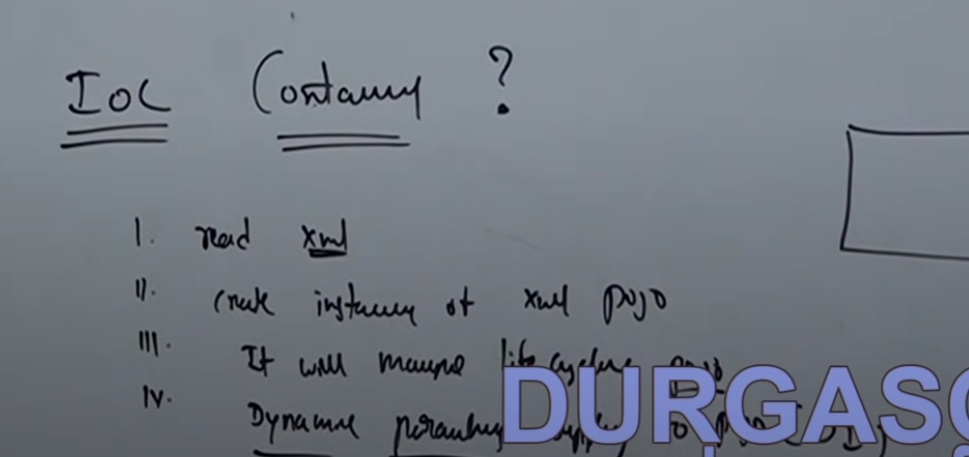 IOC Container ?
I. read xml
II. create instance of xml pojo
III. It will manage life cycle pojo
IV. Dynamic to pojo (DI)
DURGASO